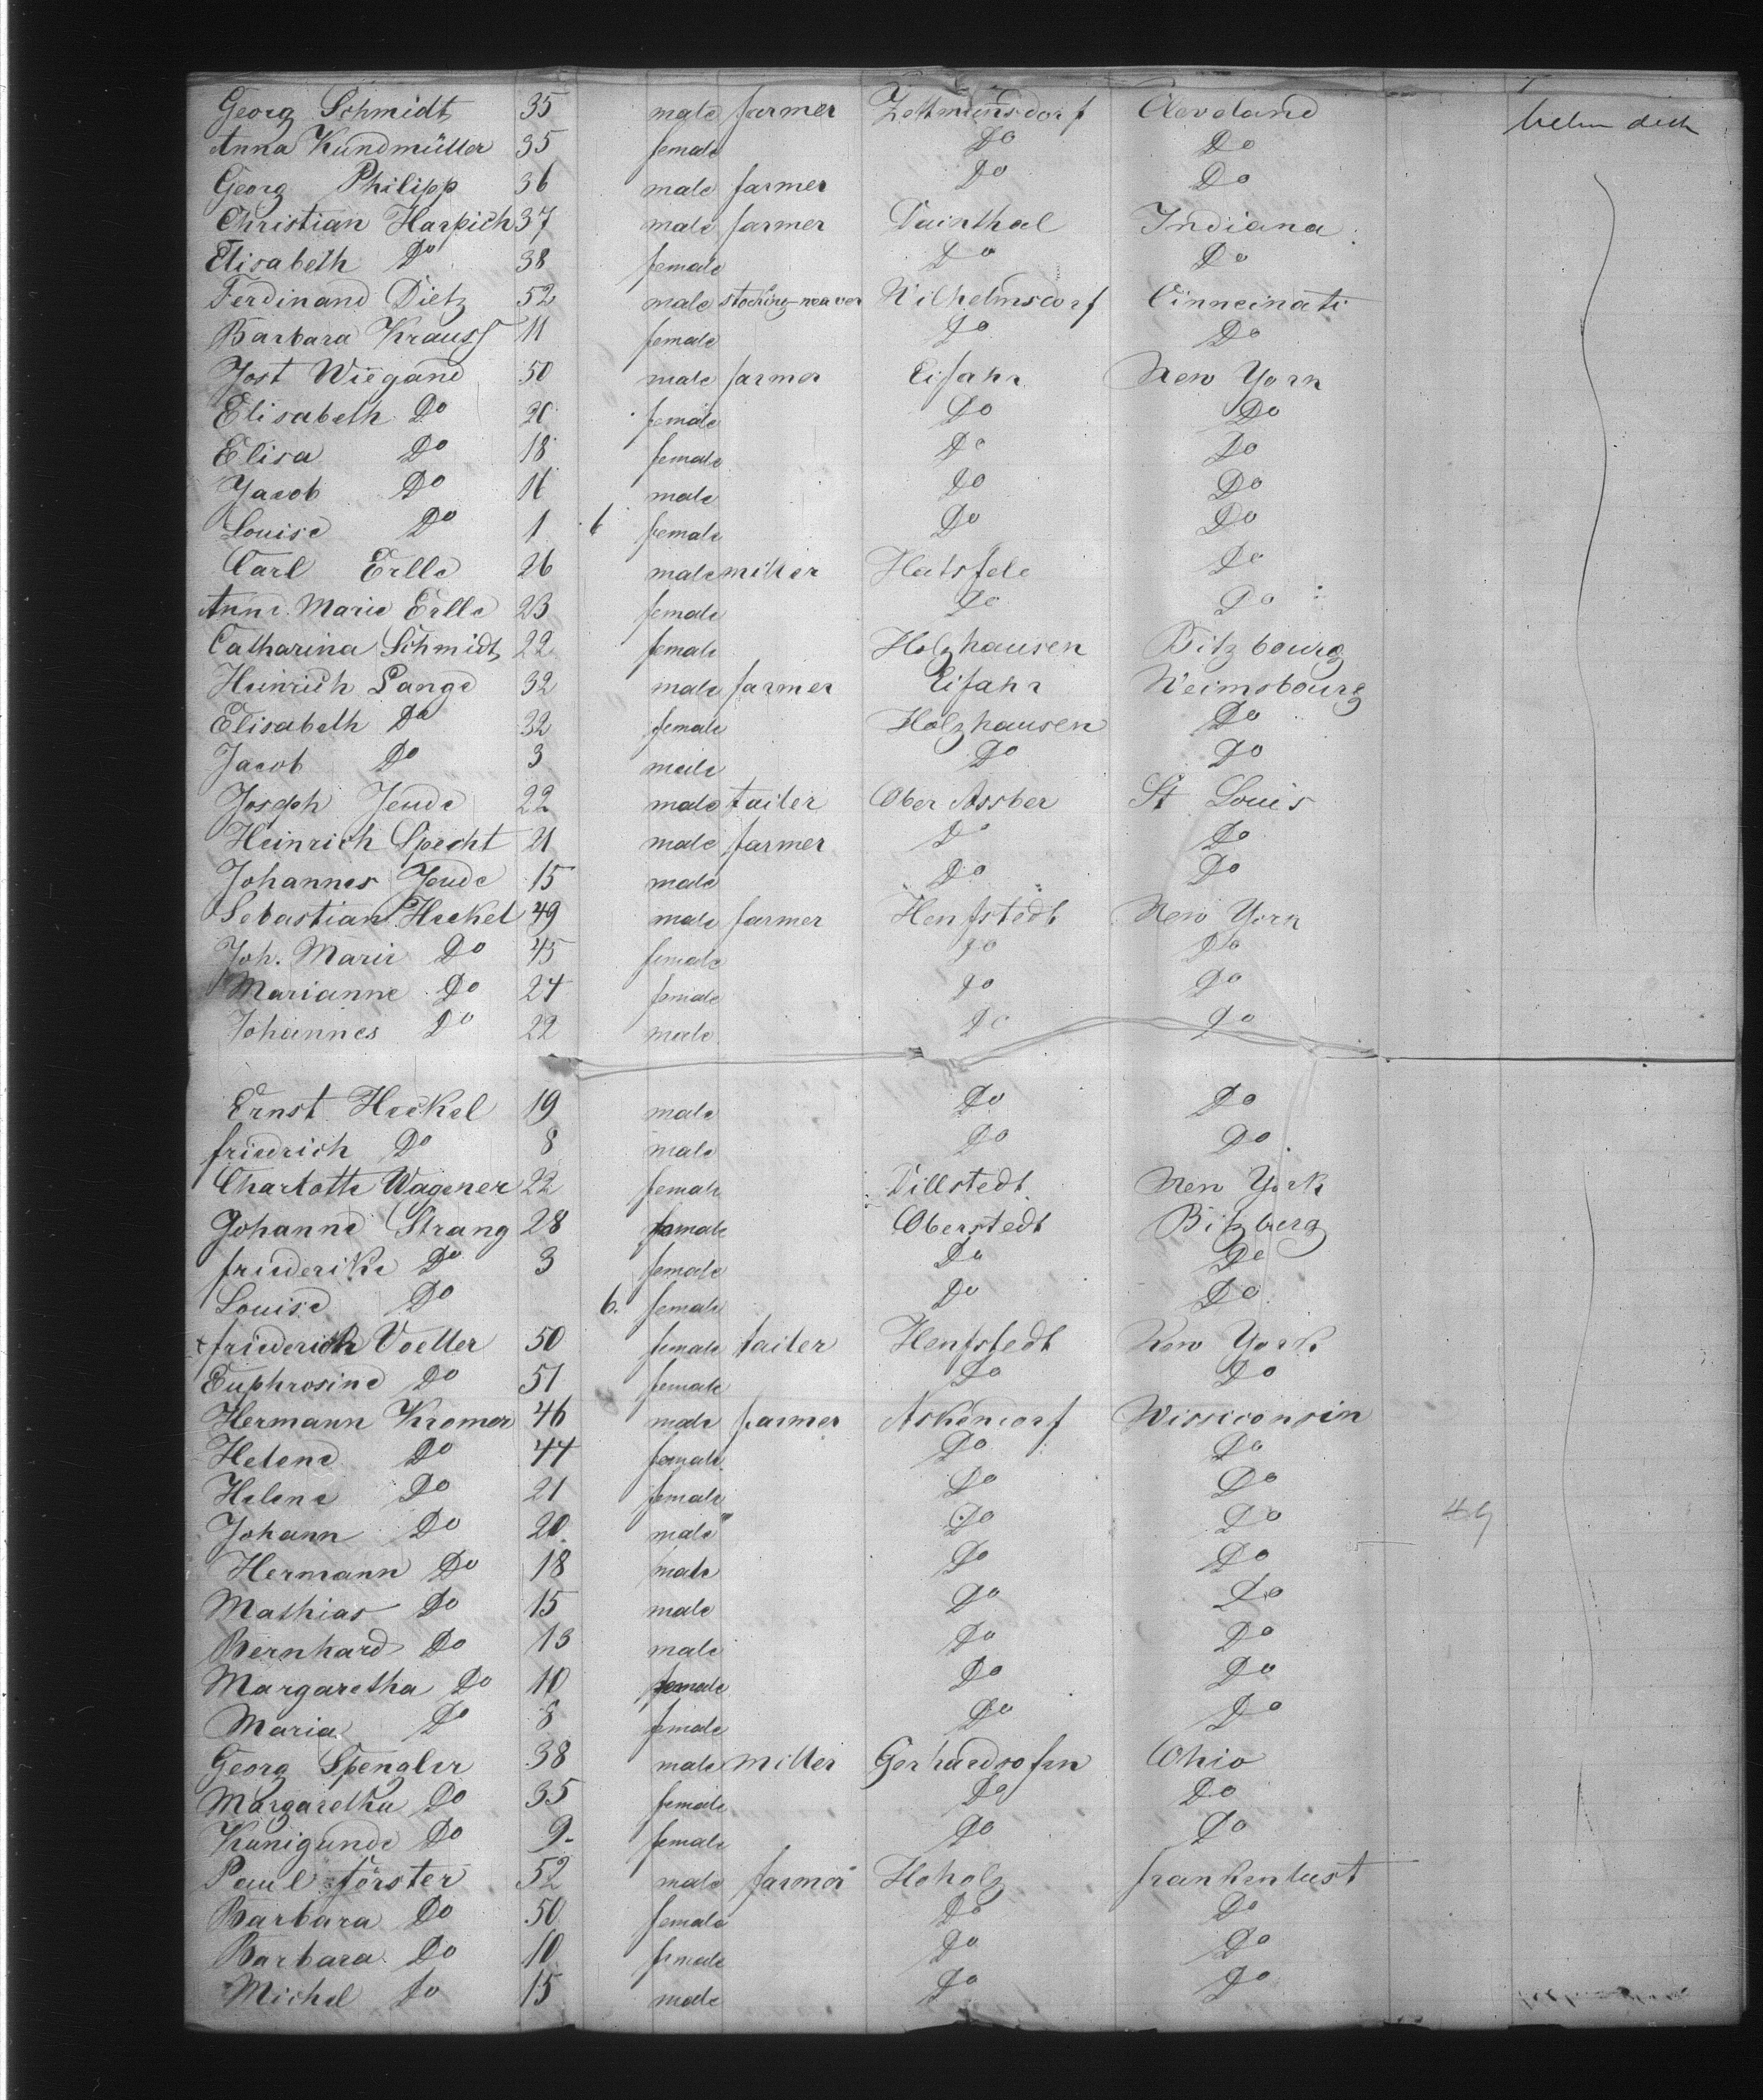 Georg Schmidt 35 male farmer Zettmannsdorf Cleveland below deck
Anna Kundmüller 35 female Do Do
Georg Philipp 36 male farmer Do Do
Christian Harpich 37 male farmer Dainthal Indiana
Elisabeth Do 38 female Do Do
Ferdinand Dietz 52 male stocking-weaver Wilhelmsdorf Cinneinati
Barbara Krauss 11 female Do Do
Jost Wiegand 50 male farmer Eifahr New York
Elisabeth Do 20 female Do Do
Elisa Do 18 female Do Do
Jacob Do 16 male Do Do
Louise Do 1 6 female Do Do
Carl Erlle 26 male miller Hatsfeld Do
Anne. Marie Erlle 23 female Do Do
Catharina Schmidt 22 female Holzhausen Bitzbourg
Heinrich Lange 32 male farmer Eifahr Weimsbourg
Elisabeth Do 32 female Holzhausen Do
Jacob Do 3 male Do Do
Joseph Jeude 22 male tailer Ober Assber St Louis
Heinrich Specht 21 male farmer Do Do
Johannes Jeude 15 male Do Do
Sebastian Heckel 49 male farmer Henfstedt New York
Joh. Marie Do 45 female Do Do
Marianne Do 24 female Do Do
Johannes Do 22 male Do Do
Ernst Heckel 19 male Do Do
friedrich Do 8 male Do Do
Charlotte Wagener 22 female Dillstedt New York
Johanne Strang 28 female Oberstedt Bitzberg
friederike Do 3 female Do Do
Louise Do 6. female Do Do
friederich Voeller 50 female tailer Henfstedt New York
Euphrosine Do 51 female Do Do
Hermann Kromer 46 male farmer Askendorf Wissiconsin
Helene Do 44 female Do Do
Helene Do 21 female Do Do
Johann Do 20 male Do Do 49
Hermann Do 18 male Do Do
Mathias Do 15 male Do Do
Bernhard Do 13 male Do Do
Margaretha Do 10 female Do Do
Maria Do 8 female Do Do
Georg Spengler 38 male miller Gerhardsofen Ohio
Margaretha Do 35 female Do Do
Kunigunde Do 9 female Do Do
Paul förster 52 male farmer Hoholz frankenlust
Barbara Do 50 female Do Do
Barbara Do 10 female Do Do
Michel Do 15 male Do Do